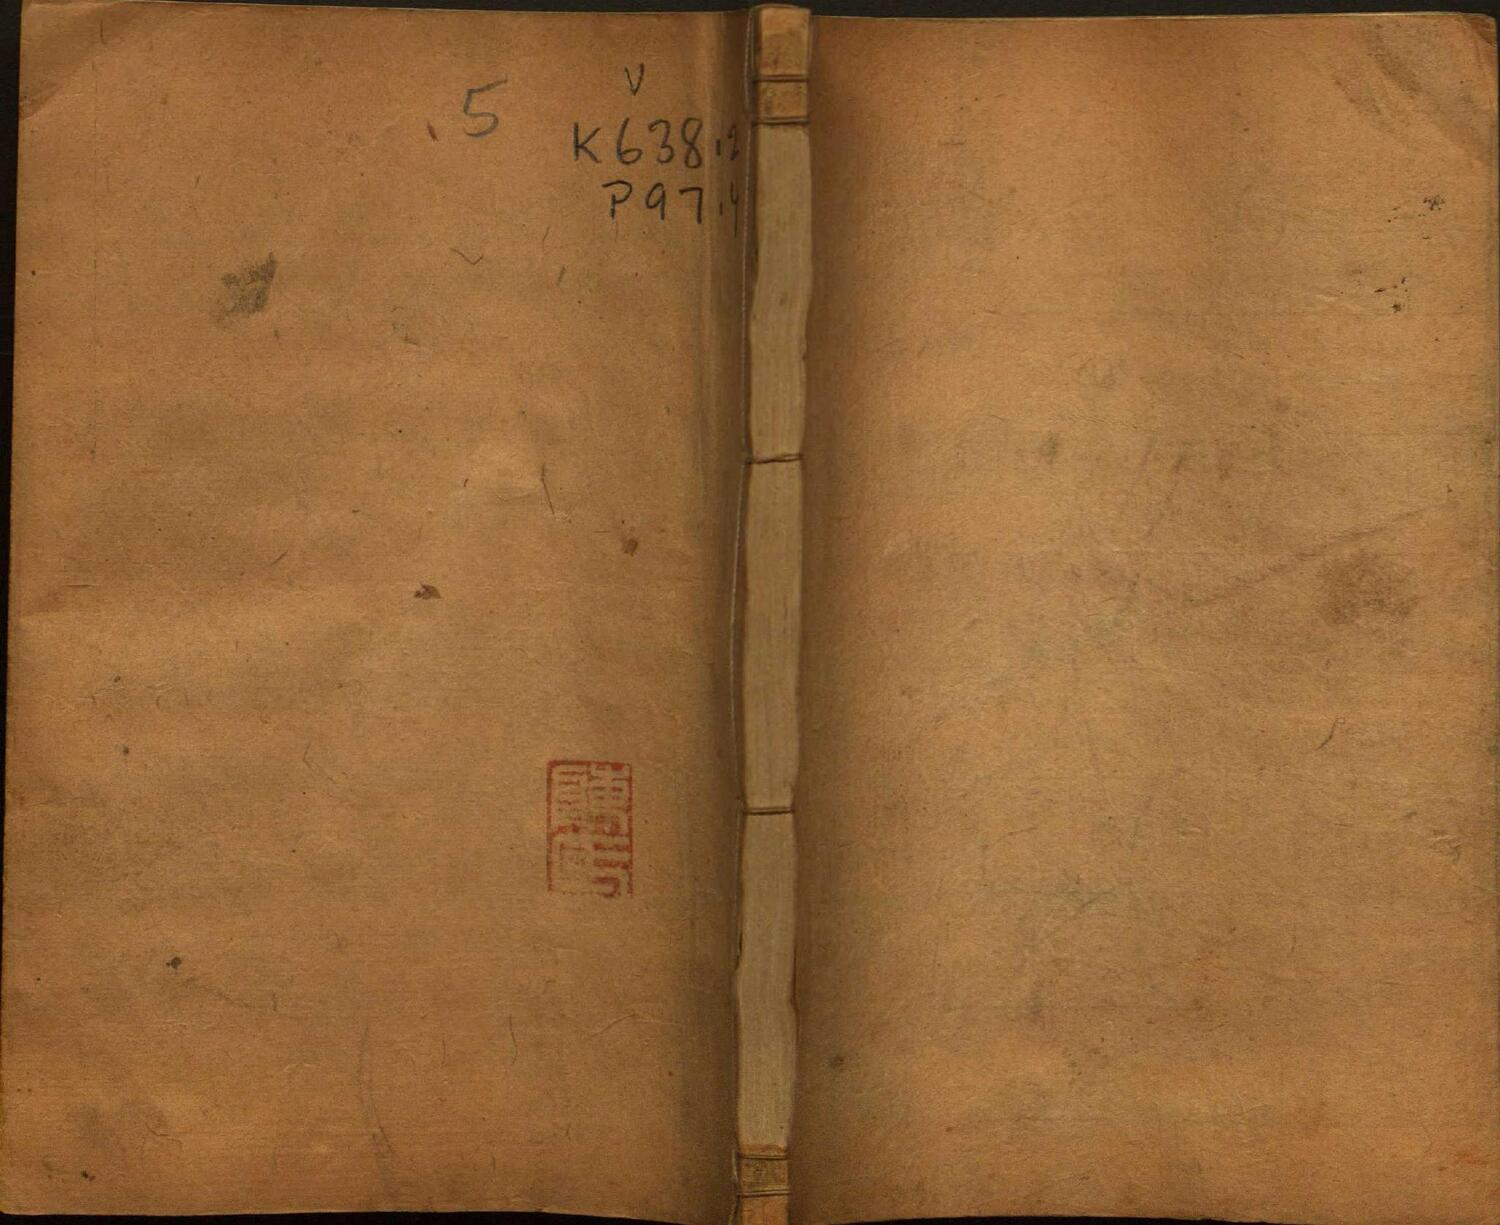 5
V
K638.2
P97.4